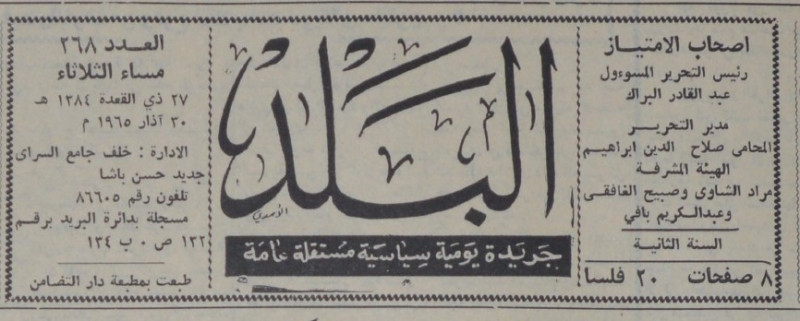 اصحاب الامتياز
رئيس التحرير المسوءول
عبد القادر البراك
مدير التحرير
المحامى صلاح الدين ابراهيم
الهيئة المشرفة
مراد الشاوى وصبيح الغافقى
وعبدالكريم بافي
السنة الثانية
٨ صفحات ٢٠ فلسا
البلد
جريدة يومية سياسية مستقلة عامة
العدد ٢٦٨
مساء الثلاثاء
٢٧ ذي القعدة ١٣٨٤ هـ
٣٠ آذار ١٩٦٥ م
الادارة : خلف جامع السراى
جديد حسن باشا
تلفون رقم ٨٦٦٠٥
مسجلة بدائرة البريد برقم
١٢٢ ص ٠ ب ١٣٤
طبعت بمطبعة دار التضامن